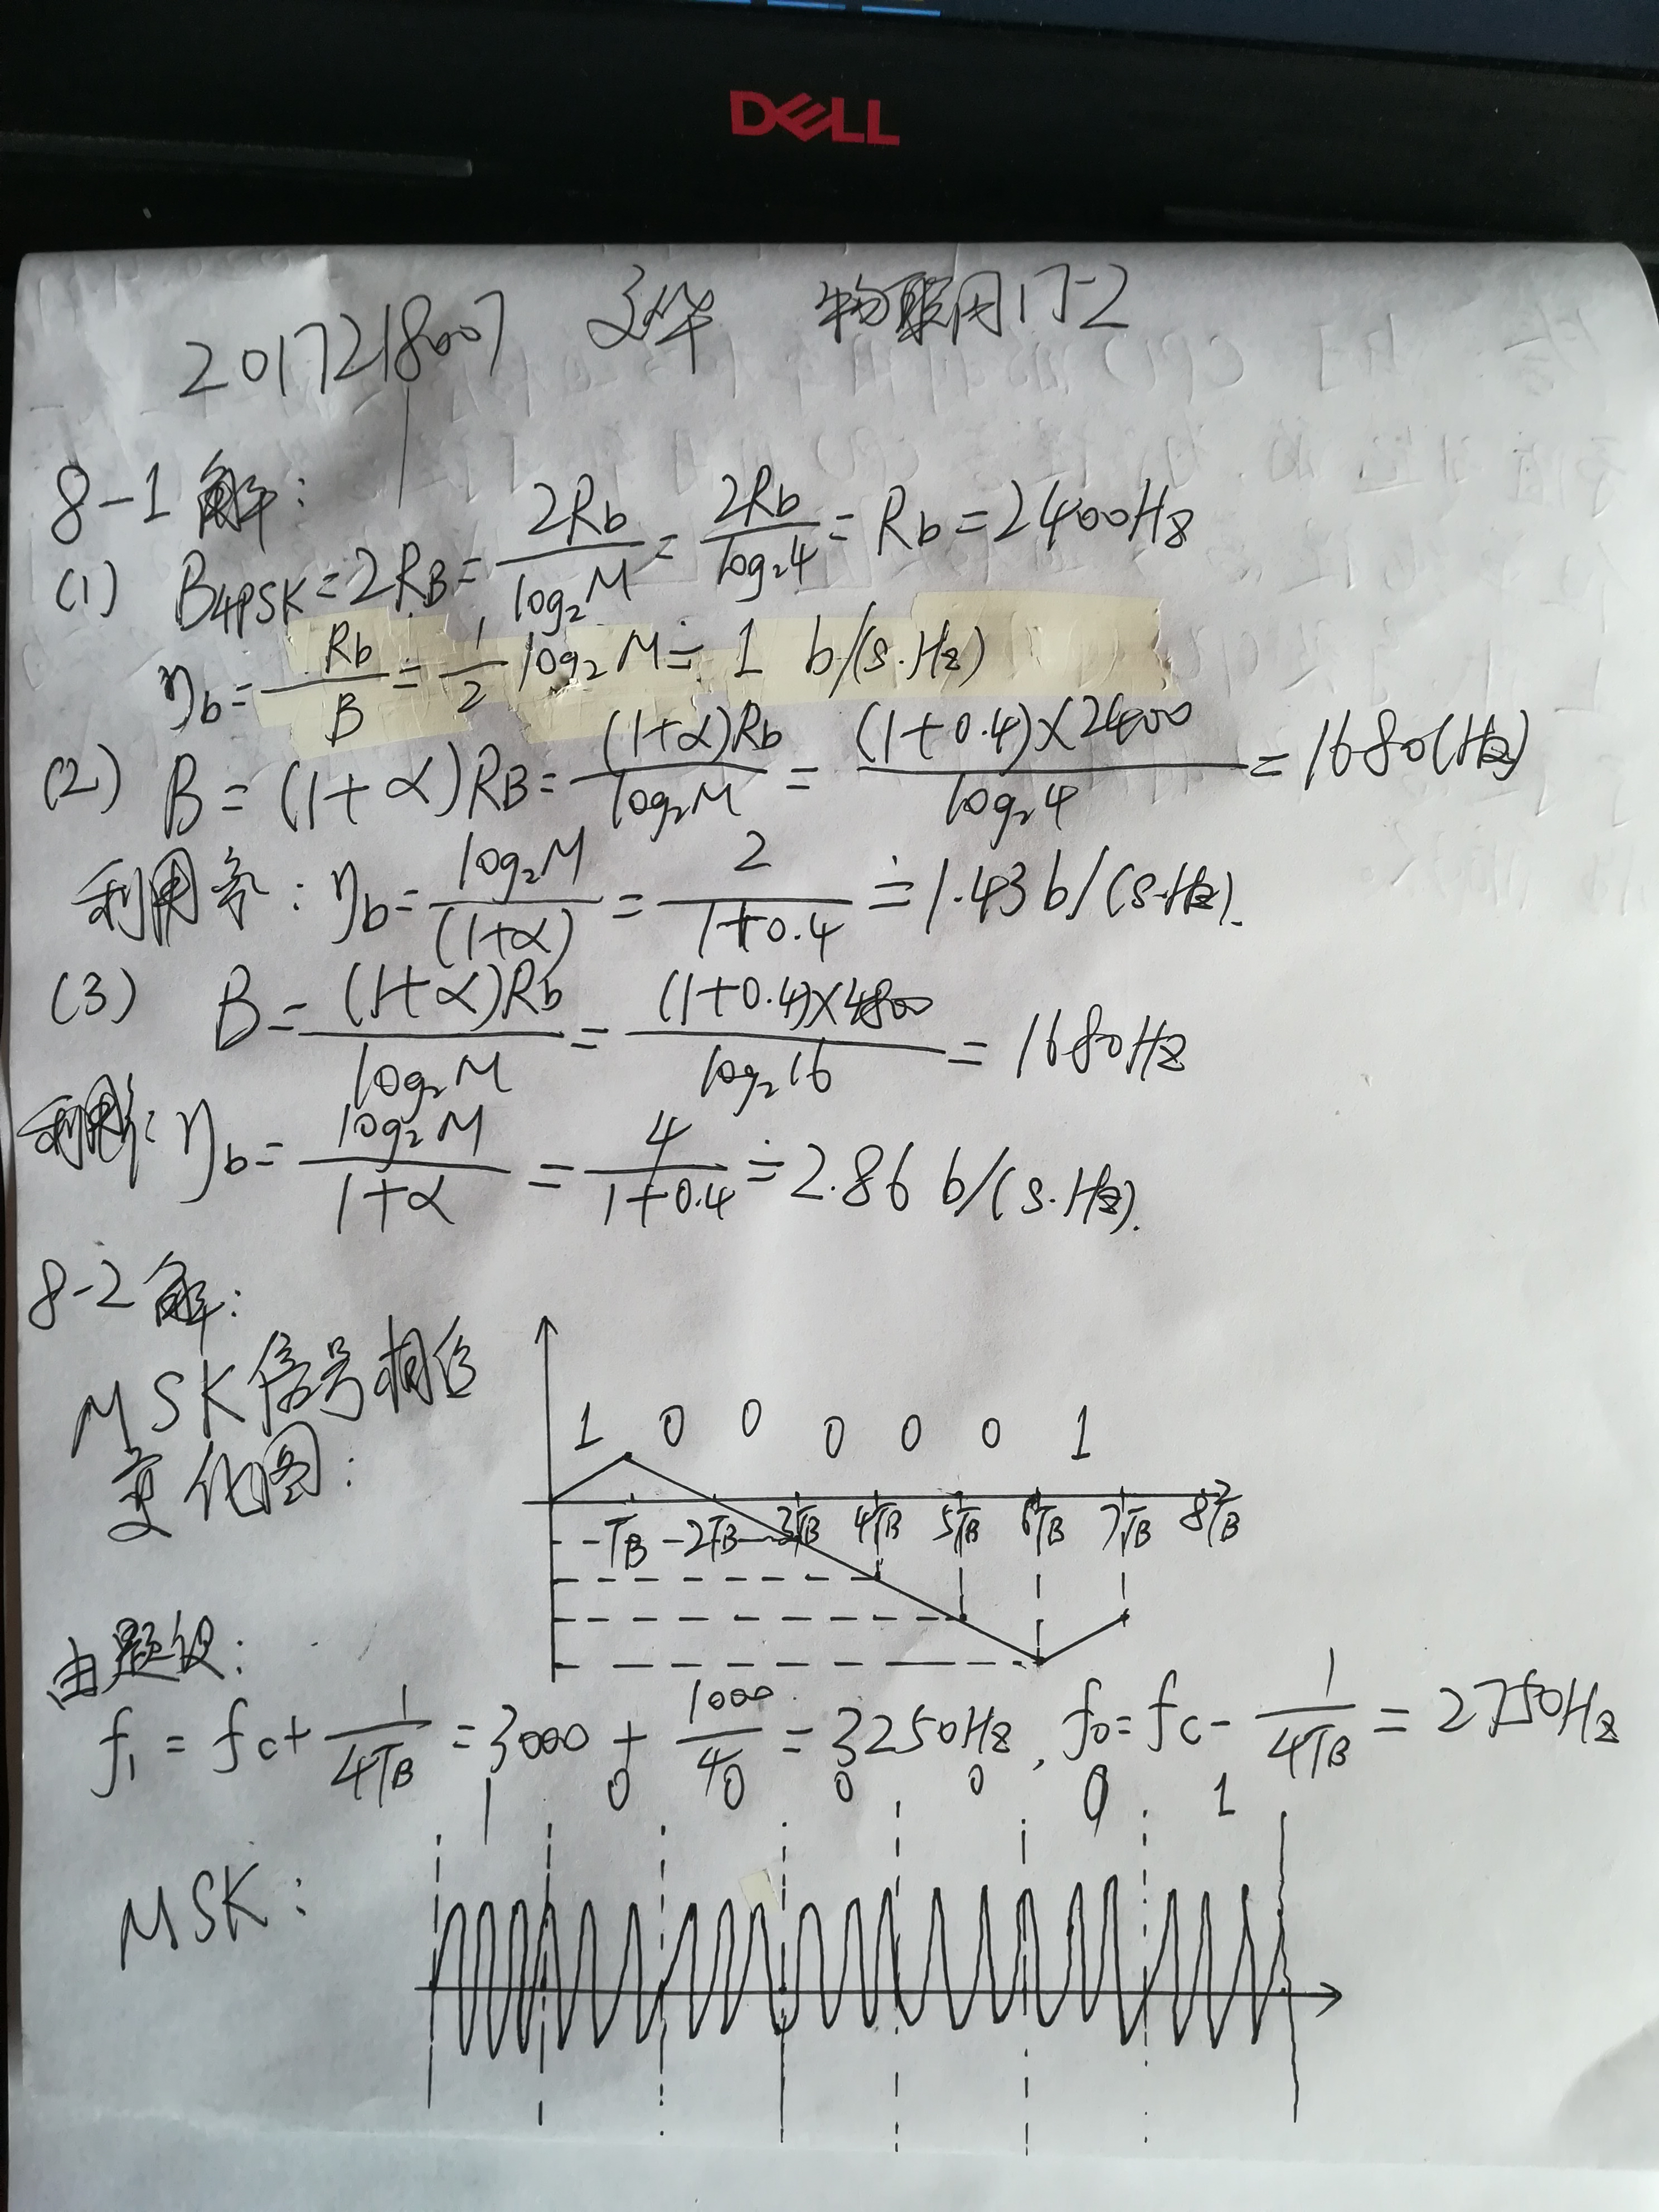 DELL
2017218007 文华 物联网17-2
8-1 解:
(1) B4PSK=2RB=2Rb/log₂M=2Rb/log₂4=Rb=2400Hz
ηb=Rb/B=1/2 log₂M≐1 b/(s.Hz)
(2) B=(1+α)RB=(1+α)Rb/log₂M=(1+0.4)×2400/log₂4=1680(Hz)
利用率: ηb=log₂M/(1+α)=2/1+0.4≐1.43b/(s.Hz).
(3) B=(1+α)Rb/log₂M=(1+0.4)×4800/log₂16=1680Hz
利用率: ηb=log₂M/1+α=4/1+0.4≐2.86 b/(s.Hz).
8-2 解:
MSK信号相位
变化图:
1 0 0 0 0 0 1
TB 2TB 3TB 4TB 5TB 6TB 7TB 8TB
由题设:
f₁=fc+1/4TB=3000+1000/4=3250Hz, f0=fc-1/4TB=2750Hz
1 0 0 0 0 0 1
MSK: